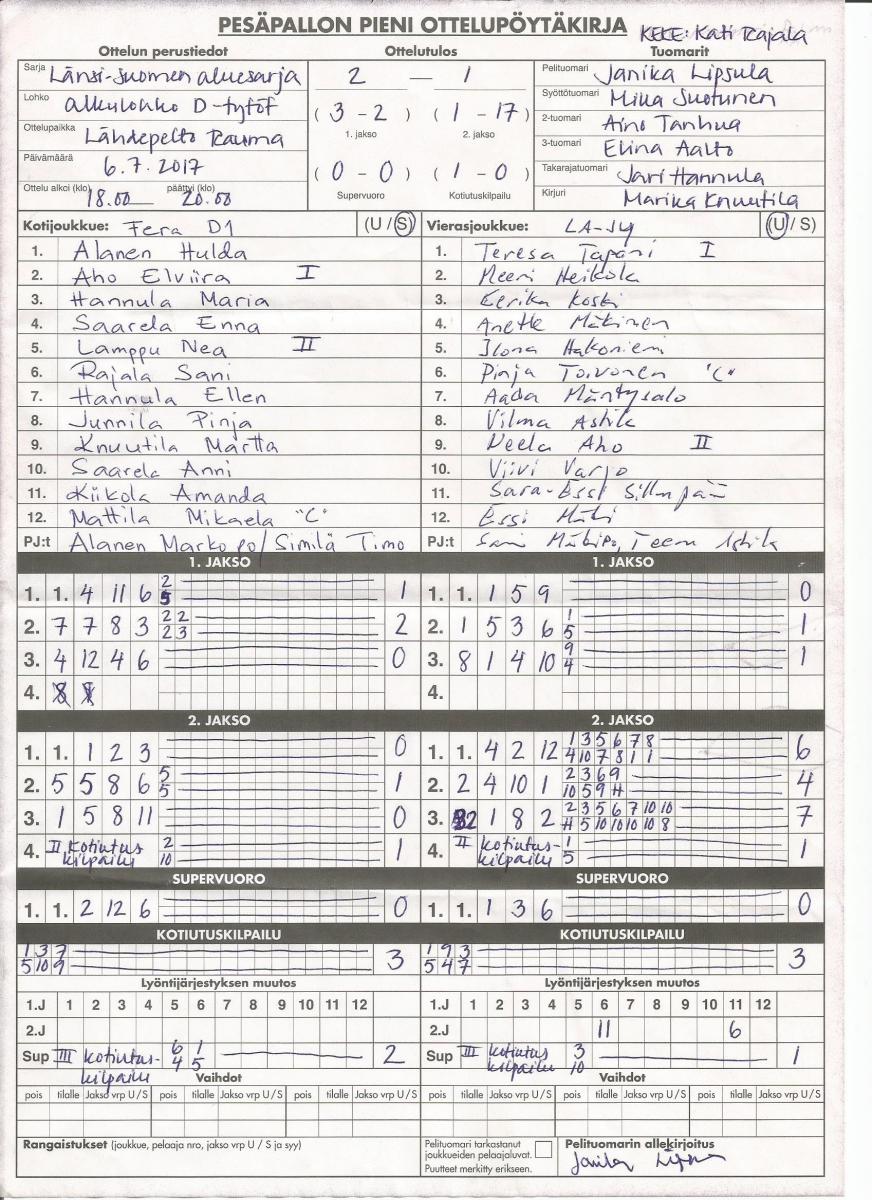 PESÄPALLON PIENI OTTELUPÖYTÄKIRJA KEKE: Kati Rajala
Ottelun perustiedot Ottelutulos Tuomarit
Sarja Länsi-Suomen aluesarja 2 — 1 Pelituomari Janika Lipsula
Lohko alkulohko D-tytöt (3 - 2) (1 - 17) Syöttötuomari Milla Suotunen
1. jakso 2. jakso
Ottelupaikka Lähdepelto Rauma 2-tuomari Aino Tanhua
Päivämäärä 6.7.2017 (0 - 0) (1 - 0) 3-tuomari Elina Aalto
Supervuoro Kotiutuskilpailu Takarajatuomari Jari Hannula
Ottelu alkoi (klo) 18.00 päättyi (klo) 20.00 Kirjuri Marika Knuutila
Kotijoukkue: Fera D1 (U / S) Vierasjoukkue: LA-Jy (U / S)
1. Alanen Hulda 1. Teresa Tapani I
2. Aho Elviira I 2. Meeri Heikola
3. Hannula Maria 3. Eerika Koski
4. Saarela Enna 4. Anette Mäkinen
5. Lamppu Nea II 5. Ilona Hakoniemi
6. Rajala Sani 6. Pinja Toivonen "C"
7. Hannula Ellen 7. Aada Mäntysalo
8. Junnila Pinja 8. Vilma Astik
9. Knuutila Martta 9. Neela Aho II
10. Saarela Anni 10. Viivi Varjo
11. Kiikola Amanda 11. Sara-Essi Sillnpää
12. Mattila Mikaela "C" 12. Essi Mäki
PJ:t Alanen Marko po/ Similä Timo PJ:t Sami Teem
1. JAKSO 1. JAKSO
1. 1. 4 11 6 2 5 1 1. 1. 1 5 9 0
2. 7 7 8 3 2 2 2 3 2 2. 1 5 3 6 1 5 1
3. 4 12 4 6 0 3. 8 1 4 10 9 4 1
4. 4.
2. JAKSO 2. JAKSO
1. 1. 1 2 3 0 1. 1. 4 2 12 1 3 5 6 7 8 4 10 7 8 1 1 6
2. 5 5 8 6 5 5 1 2. 2 4 10 1 2 3 6 9 10 5 9 11 4
3. 1 5 8 11 0 3. 12 1 8 2 2 3 5 6 7 10 10 11 5 10 10 10 10 8 7
4. II Kotiutuskilpailu 2 10 1 4. II kotiutus-kilpailu 1 5 1
SUPERVUORO SUPERVUORO
1. 1. 2 12 6 0 1. 1. 1 3 6 0
KOTIUTUSKILPAILU KOTIUTUSKILPAILU
1 3 7 1 9 3
5 10 9 3 5 4 7 3
Lyöntijärjestyksen muutos Lyöntijärjestyksen muutos
1.J 1 2 3 4 5 6 7 8 9 10 11 12 1.J 1 2 3 4 5 6 7 8 9 10 11 12
2.J 2.J 11 6
Sup III kotiutus-kilpailu 6 1 4 5 2 Sup III kotiutuskilpailu 3 10 1
Vaihdot Vaihdot
pois tilalle Jakso vrp U/S pois tilalle Jakso vrp U/S pois tilalle Jakso vrp U/S pois tilalle Jakso vrp U/S
Rangaistukset (joukkue, pelaaja nro, jakso vrp U / S ja syy) Pelituomari tarkastanut joukkueiden pelaajaluvat. Puutteet merkitty erikseen. Pelituomarin allekirjoitus